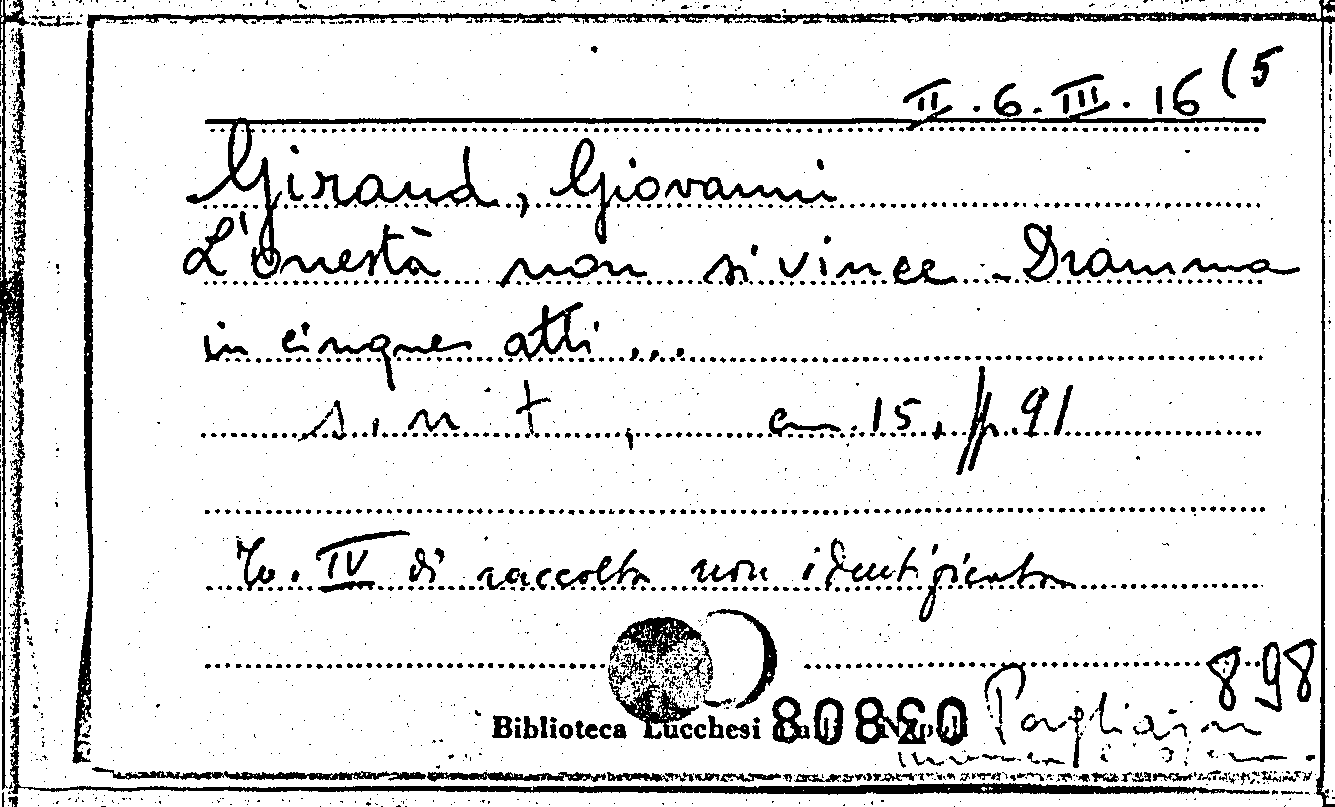 II.6.III.16(5
Giraud, Giovanni
L'onestà non si vince - Dramma
in cinque atti ...
s. n t, cm. 15, pp. 91
To. IV di raccolta non identificata
898
Biblioteca Lucchesi Palli Napoli